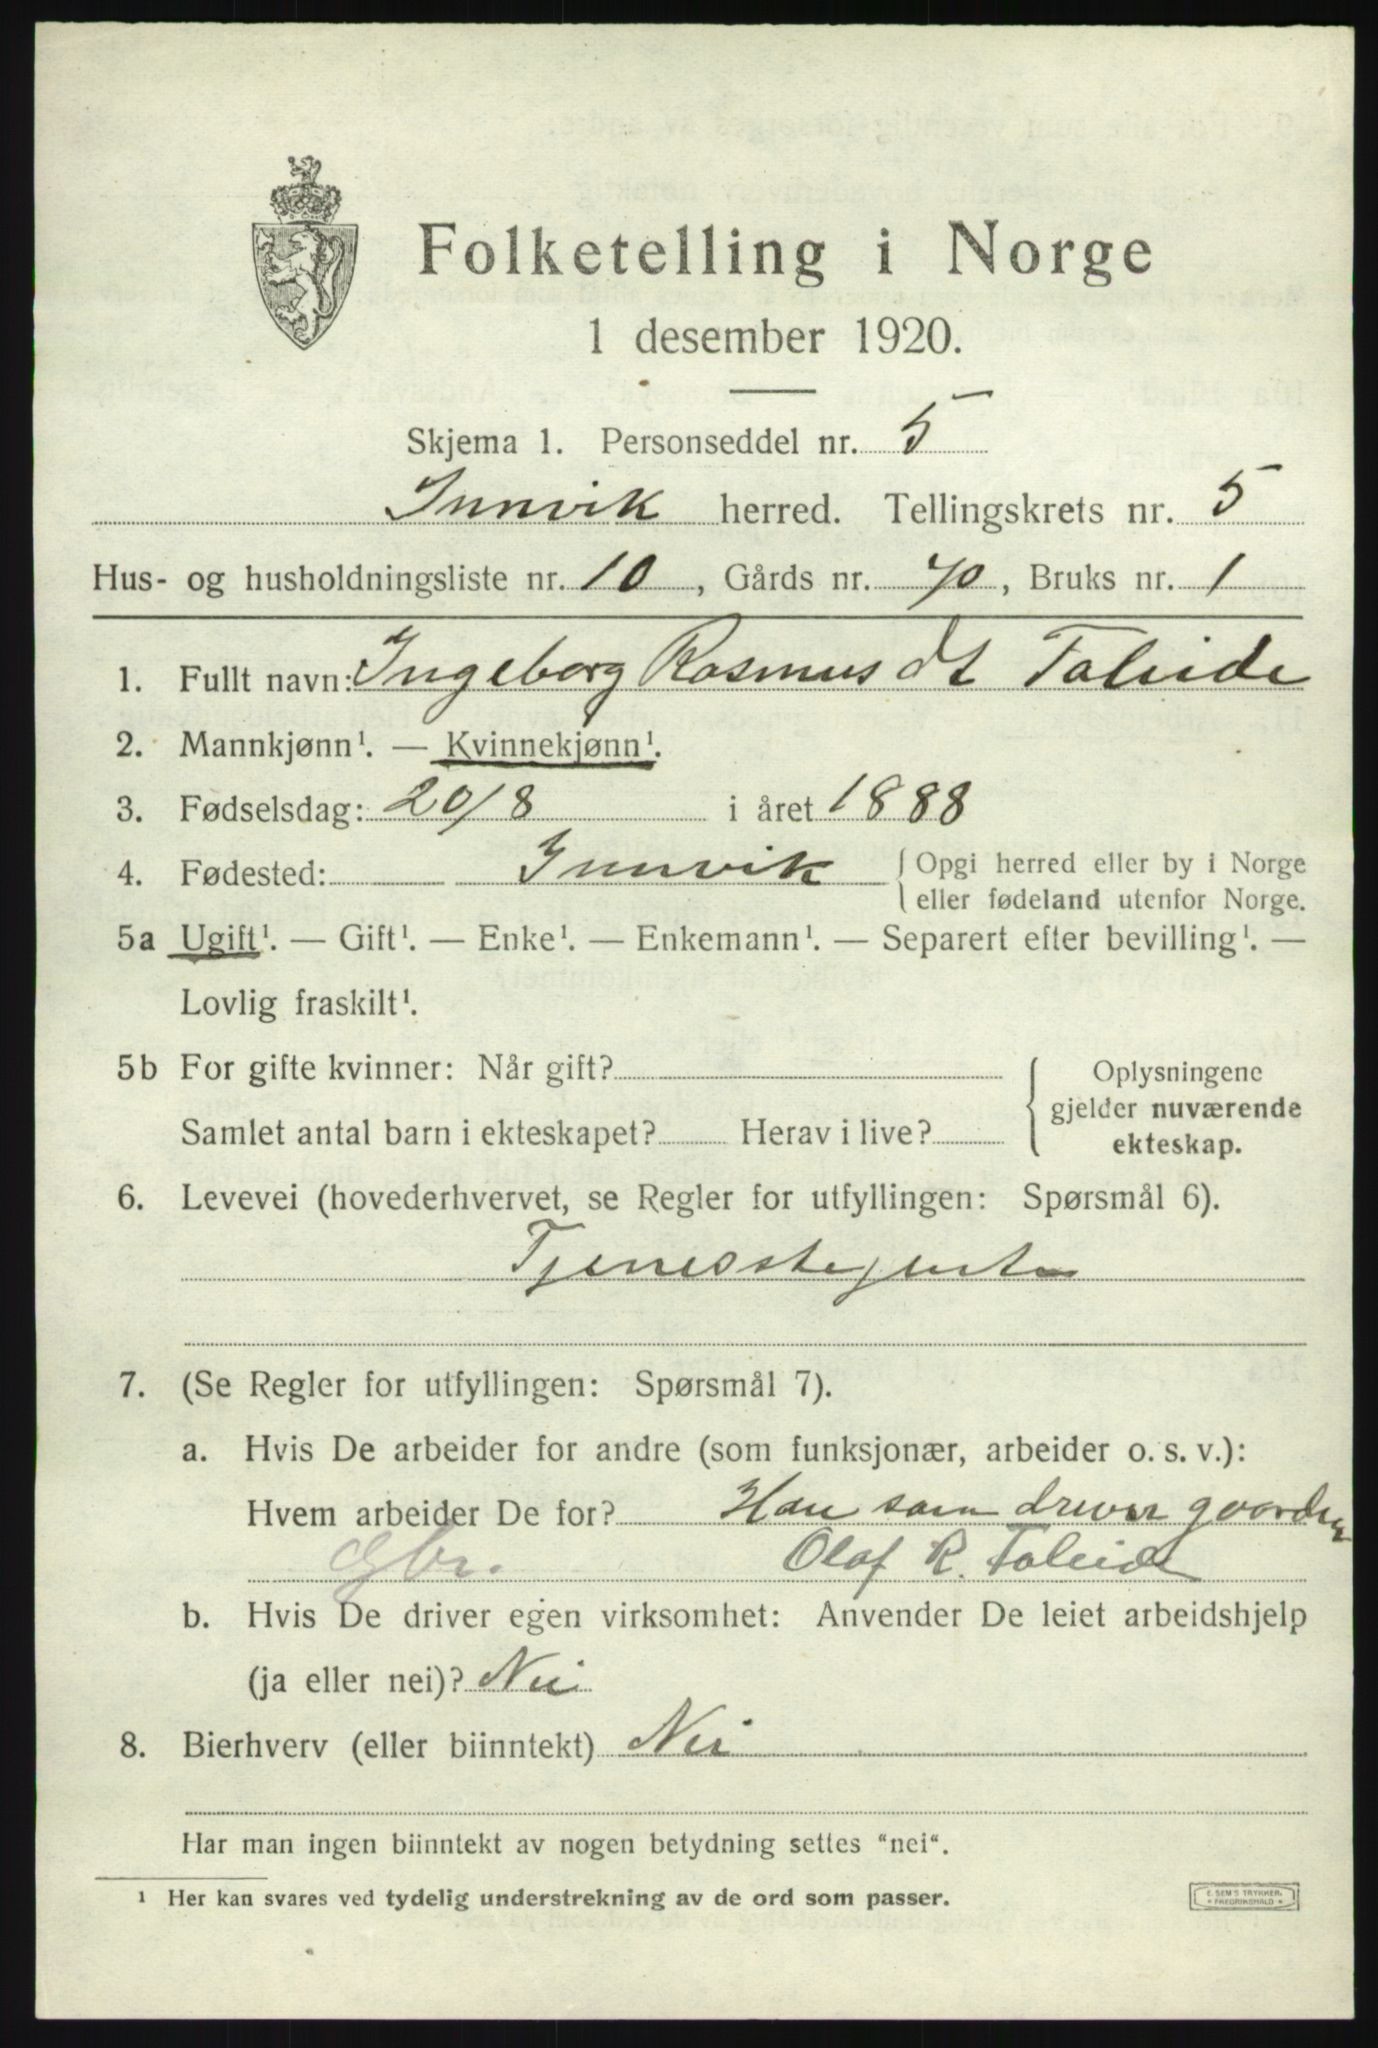 Folketelling i Norge
1 desember 1920.
Skjema 1. Personseddel nr. 5
Innvik herred. Tellingskrets nr. 5
Hus- og husholdningsliste nr. 10, Gårds nr. 70, Bruks nr. 1
1. Fullt navn: Ingeborg Rasmus dt Taleide
2. Mannkjønn¹. — Kvinnekjønn¹.
3. Fødselsdag: 20/8 i året 1888
4. Fødested: Innvik { Opgi herred eller by i Norge
eller fødeland utenfor Norge.
5a Ugift¹. — Gift¹. — Enke¹. — Enkemann¹. — Separert efter bevilling¹. —
Lovlig fraskilt¹.
5b For gifte kvinner: Når gift? { Oplysningene
gjelder nuværende
Samlet antal barn i ekteskapet? Herav i live?
ekteskap.
6. Levevei (hovederhvervet, se Regler for utfyllingen: Spørsmål 6).
Tjenestejente
7. (Se Regler for utfyllingen: Spørsmål 7).
a. Hvis De arbeider for andre (som funksjonær, arbeider o. s. v.):
Hvem arbeider De for? Han som driver gaarden
Gbr. Olaf R. Taleide
b. Hvis De driver egen virksomhet: Anvender De leiet arbeidshjelp
(ja eller nei)? Nei
8. Bierhverv (eller biinntekt) Nei
Har man ingen biinntekt av nogen betydning settes "nei".
¹ Her kan svares ved tydelig understrekning av de ord som passer.
E. SEM'S TRYKKERI
FREDRIKSHALD